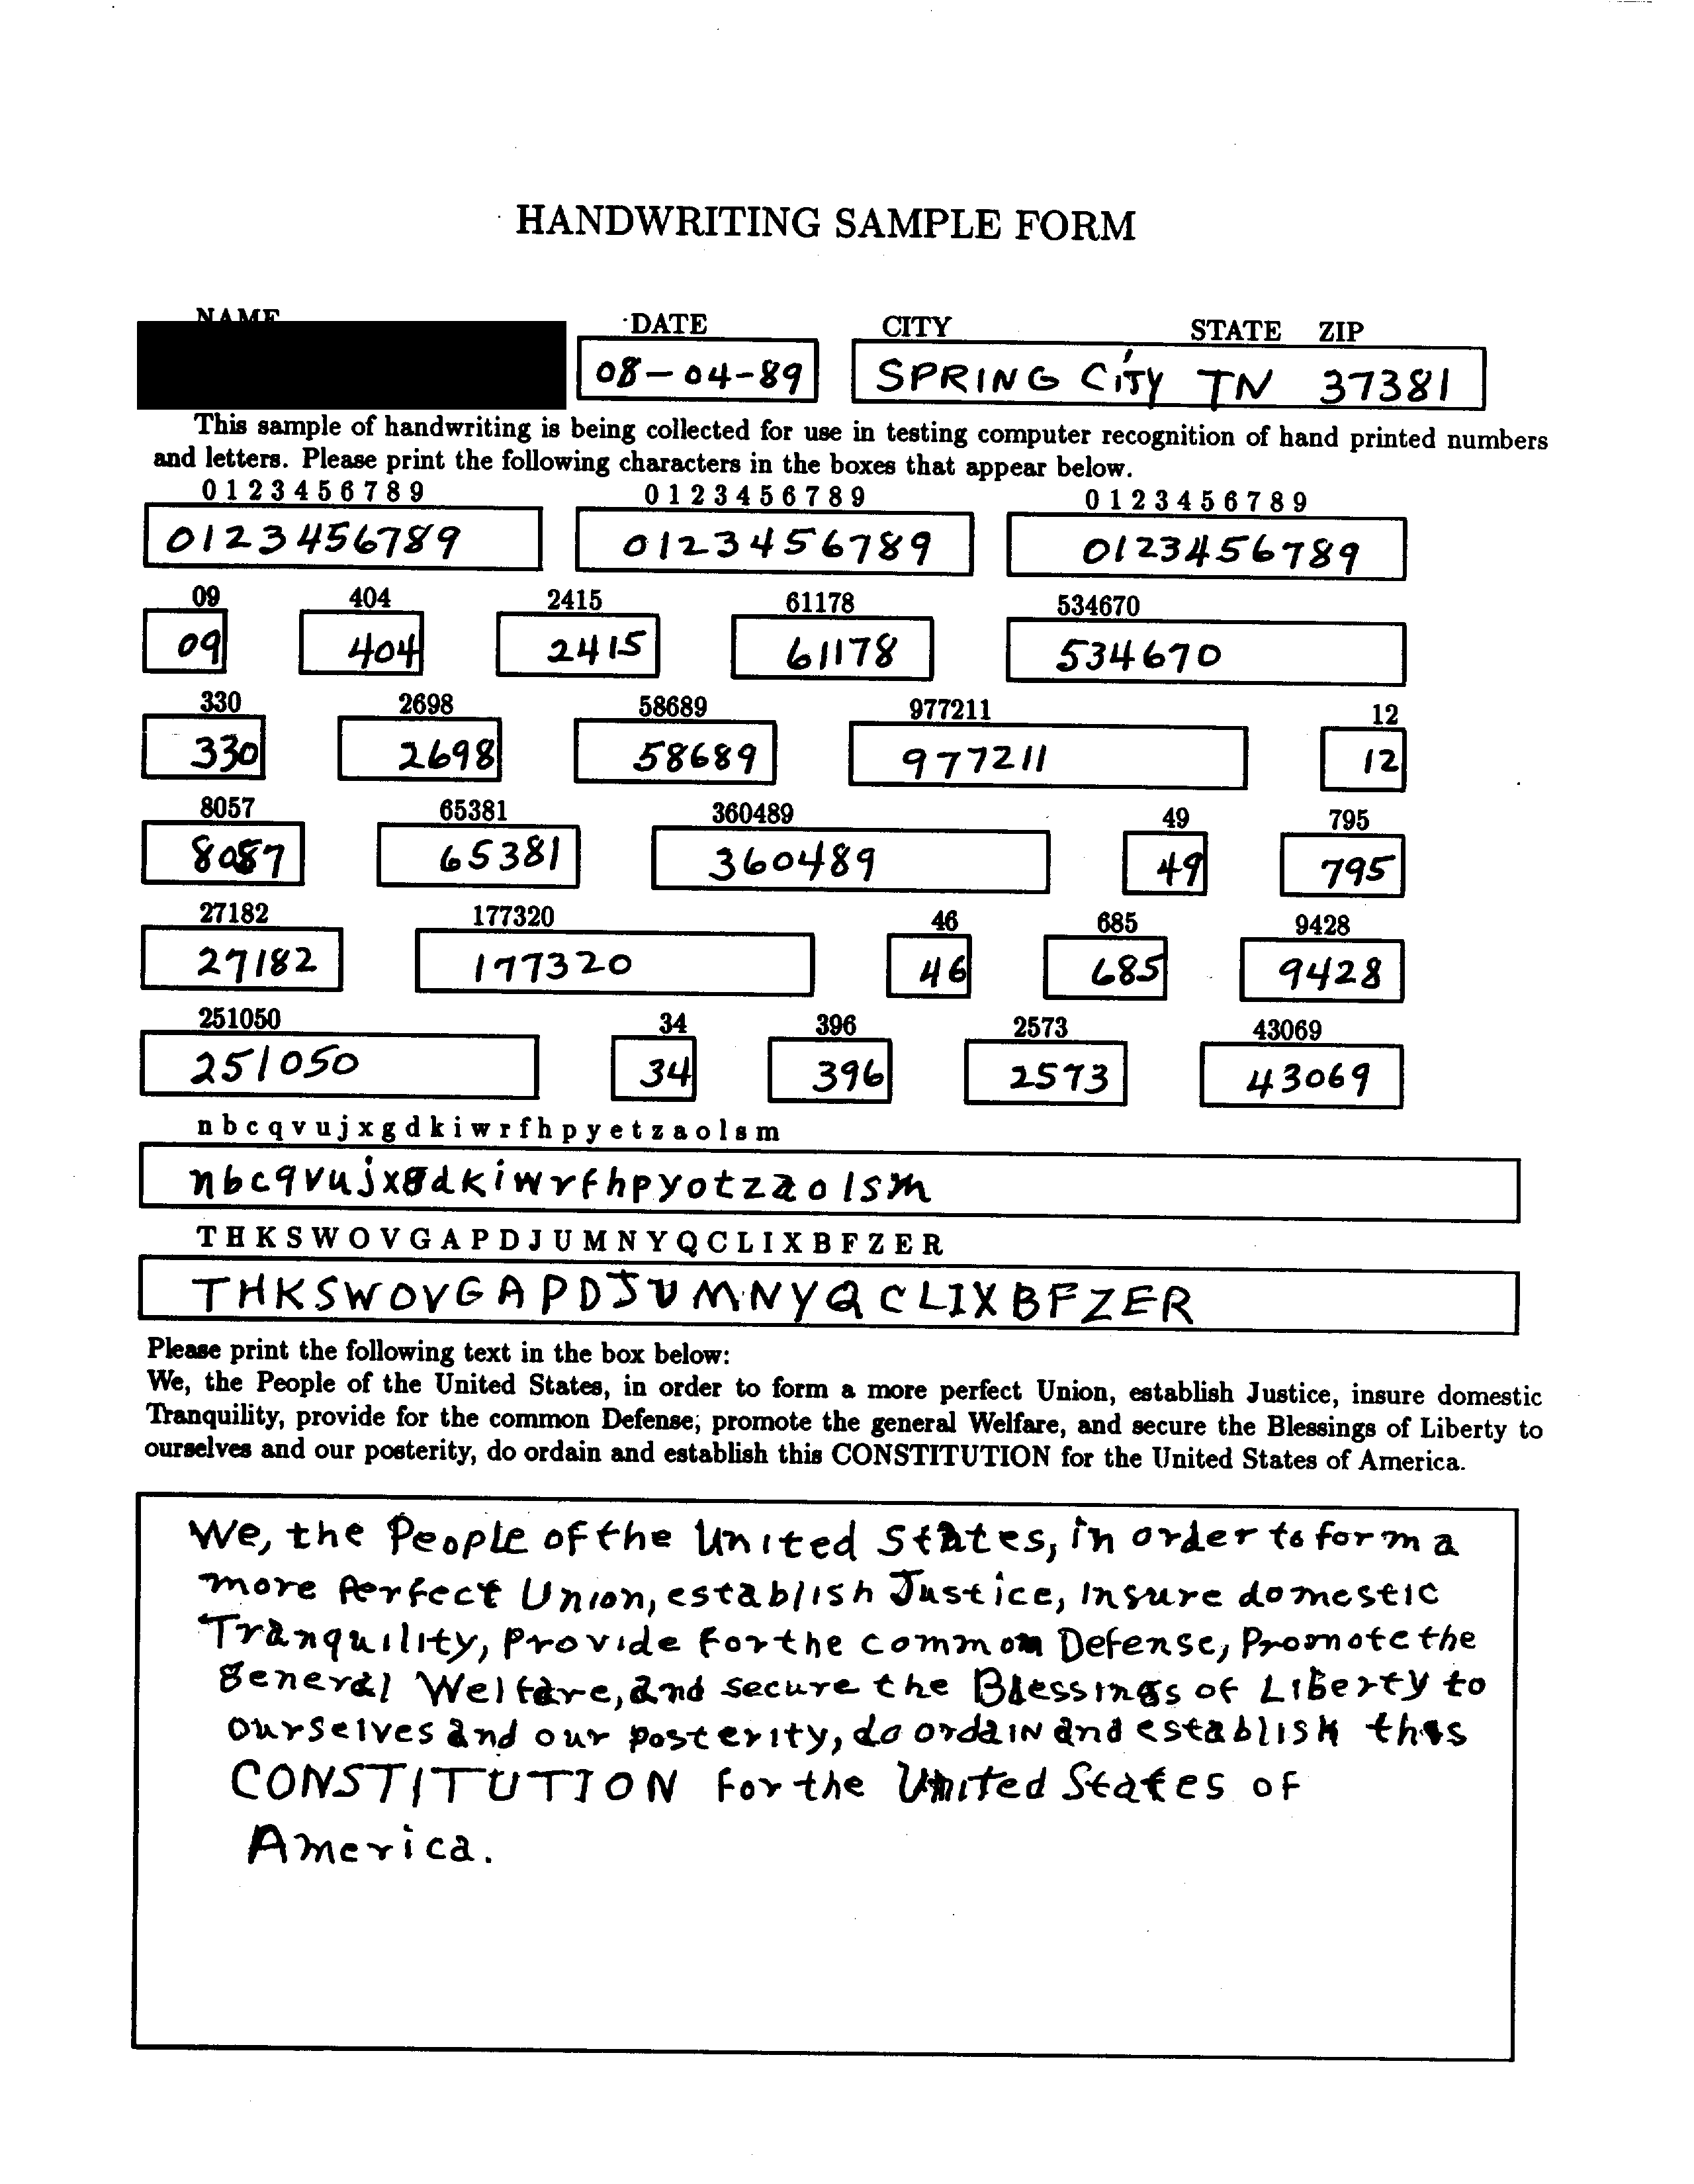 HANDWRITING SAMPLE FORM
NAME DATE CITY STATE ZIP
08-04-89 SPRING CiTY TN 37381
This sample of handwriting is being collected for use in testing computer recognition of hand printed numbers
and letters. Please print the following characters in the boxes that appear below.
0 1 2 3 4 5 6 7 8 9 0 1 2 3 4 5 6 7 8 9 0 1 2 3 4 5 6 7 8 9
0123456789 0123456789 0123456789
09 404 2415 61178 534670
09 404 2415 61178 534670
330 2698 58689 977211 12
330 2698 58689 977211 12
8057 65381 360489 49 795
8087 65381 360489 49 795
27182 177320 46 685 9428
27182 177320 46 685 9428
251050 34 396 2573 43069
251050 34 396 2573 43069
n b c q v u j x g d k i w r f h p y e t z a o l s m
nbcqvujxgdkiwrfhpyotzaolsm
T H K S W O V G A P D J U M N Y Q C L I X B F Z E R
THKSWOVGAPDJUMNYQCLIXBFZER
Please print the following text in the box below:
We, the People of the United States, in order to form a more perfect Union, establish Justice, insure domestic
Tranquility, provide for the common Defense; promote the general Welfare, and secure the Blessings of Liberty to
ourselves and our posterity, do ordain and establish this CONSTITUTION for the United States of America.
We, the People of the United States, in order to form a
more perfect Union, establish Justice, Insure domestic
Tranquility, provide for the common Defense, Promote the
general Welfare, and secure the Blessings of Liberty to
ourselves and our posterity, do ordain and establish this
CONSTITUTION for the United States of
America.